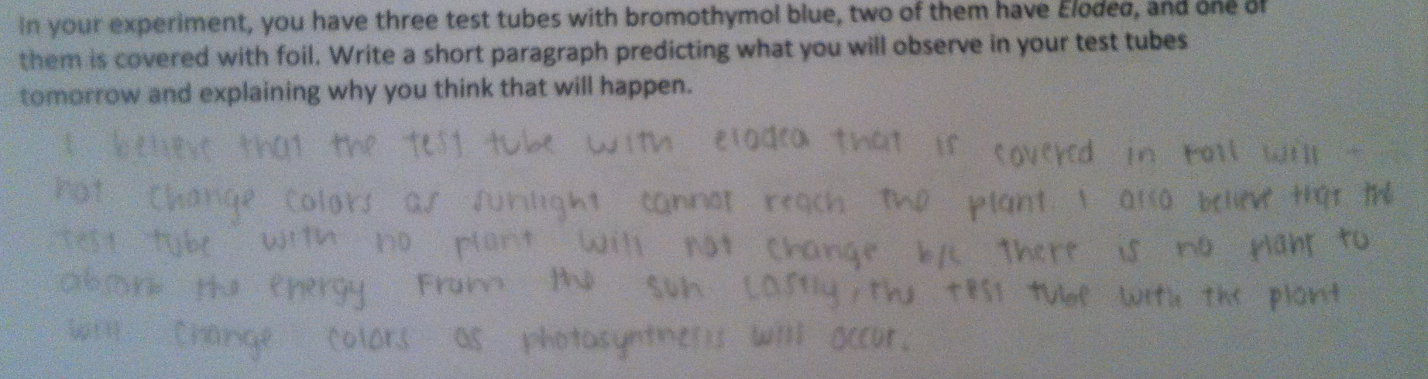 In your experiment, you have three test tubes with bromothymol blue, two of them have Elodea, and one of
them is covered with foil. Write a short paragraph predicting what you will observe in your test tubes
tomorrow and explaining why you think that will happen.
I believe that the test tube with elodea that is covered in foil will
not change colors as sunlight cannot reach the plant. I also believe that the
test tube with no plant will not change b/c there is no plant to
absorb the energy from the sun. Lastly, the test tube with the plant
will change colors as photosynthesis will occur.